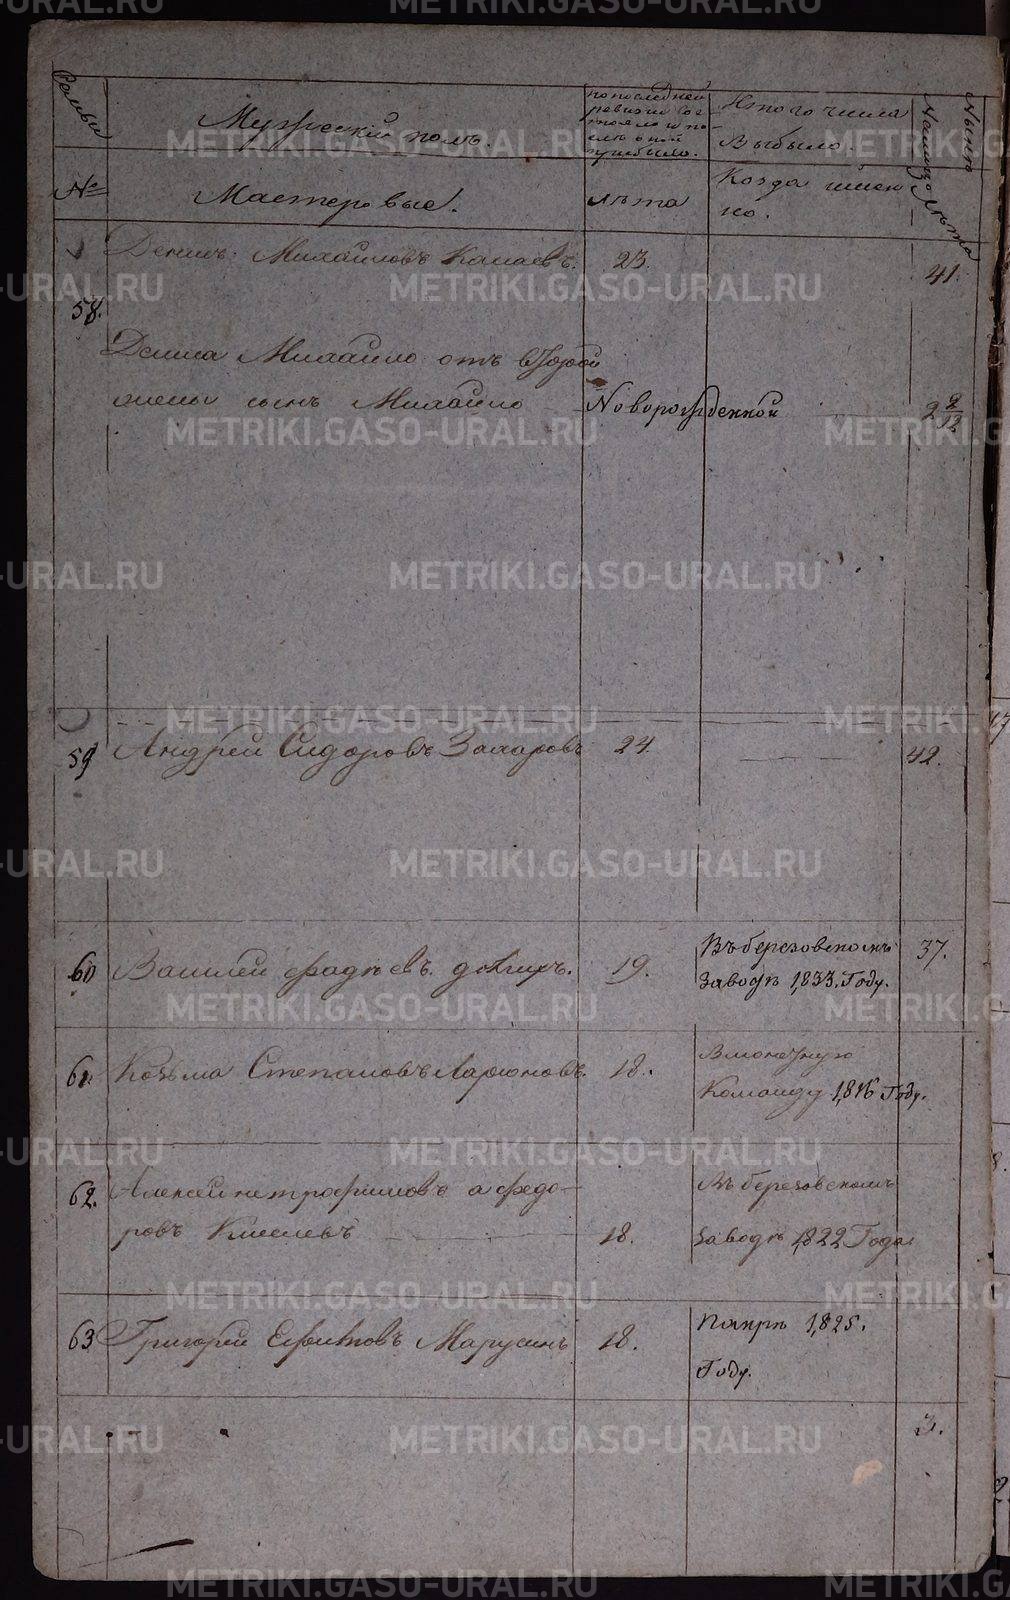 Семьи
Мужеский полъ.
по последней
ревизіи сос
тояло и по
слѣ оной
прибыло.
Изтого числа
Выбыло.
Ныне
Налицо
№
Мастеровые.
лѣта
Когда имен
но.
лѣта
Денисъ Михайловъ Канаевъ. 23. 41.
58.
Дениса Михайло отъ второй
жены сынъ Михайло Новорожденной 2 2/12
59 Андрей Сидоровъ Захаровъ 24. 42.
60 Василей Фадѣевъ долгихъ. 19. Въ березовскомъ 37.
заводѣ 1833. Году.
61. Козьма Степановъ Ларионовъ. 18. Вмонетную
Команду 1816 Году.
62. Алексей Митрофановъ а федо-
Въ березовскомъ
ровъ Киселевъ 18. заводѣ 1822 Года
63 Григорей Ефимовъ Марусинъ 18. Помре 1825.
Году.
3.
METRIKI.GASO-URAL.RU